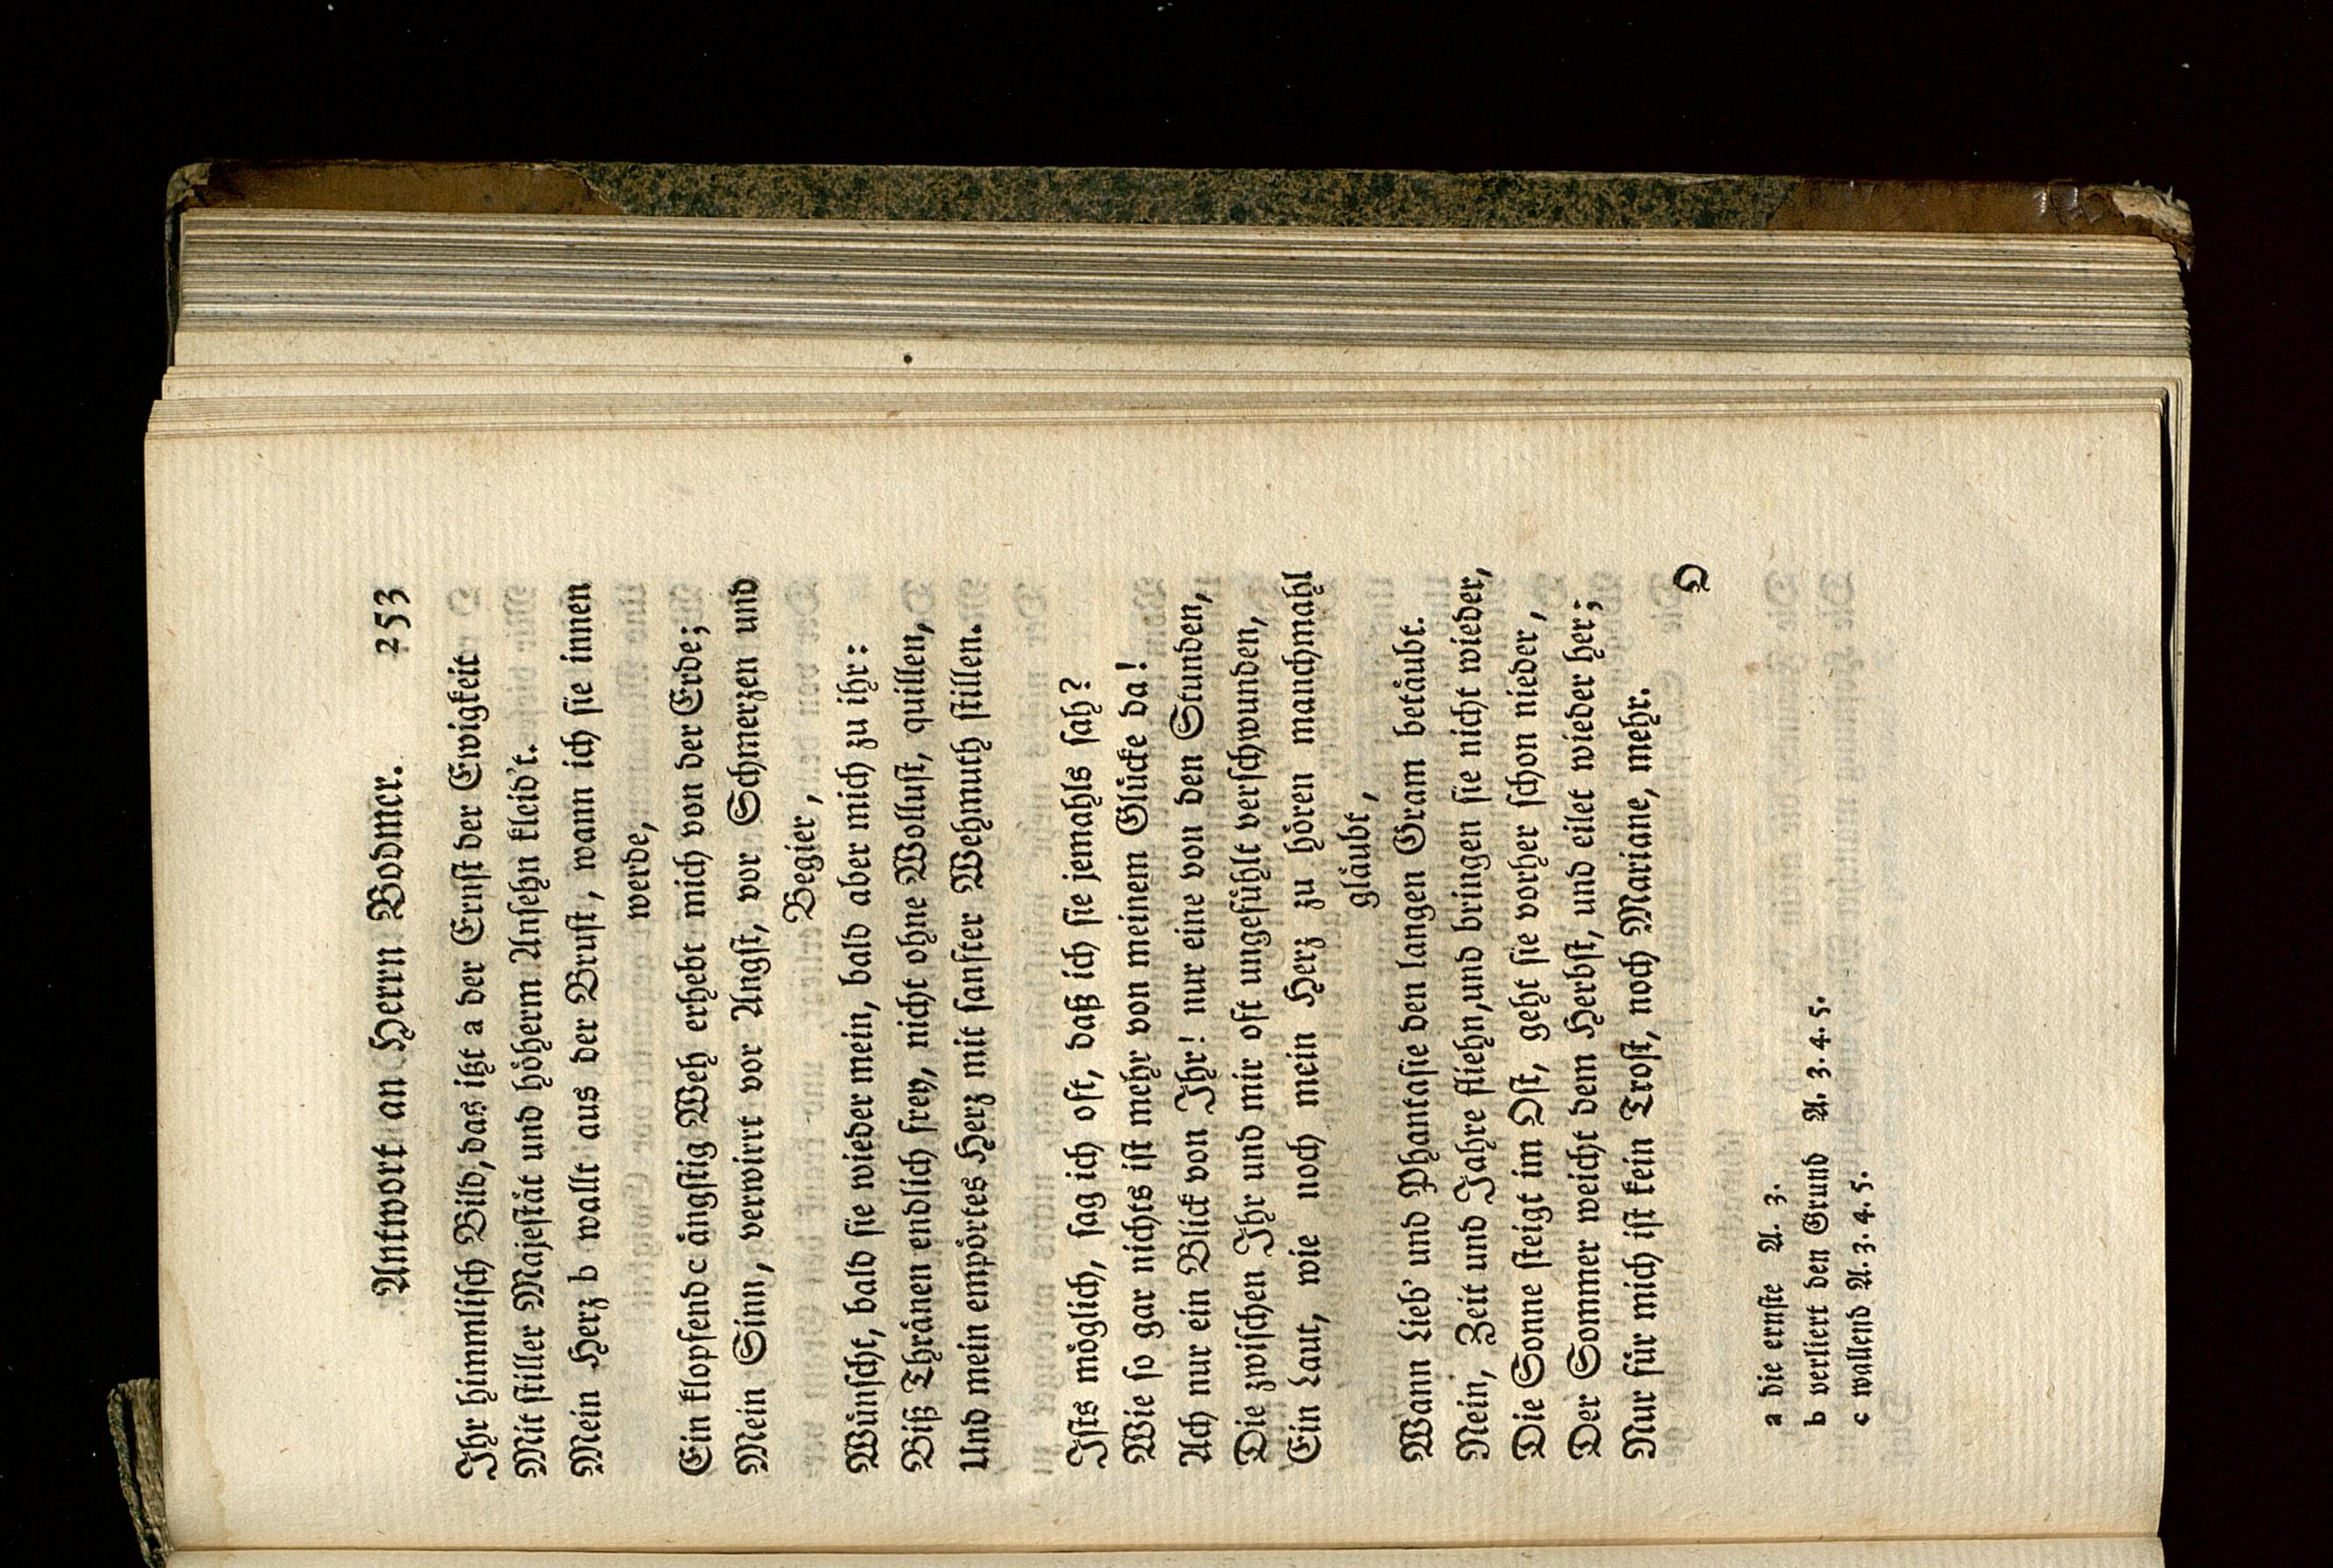 Antwort an Herrn Bodmer. 253
Ihr himmlisch Bild, das itzt a der Ernst der Ewigkeit
Mit stiller Majestät und höherm Ansehn kleid't.
Mein Herz b wallt aus der Brust, wann ich sie innen
werde,
Ein klopfend c ängstig Weh erhebt mich von der Erde;
Mein Sinn, verwirrt vor Angst, vor Schmerzen und
Begier,
Wünscht, bald sie wieder mein, bald aber mich zu ihr:
Biß Thränen endlich frey, nicht ohne Wollust, quillen,
Und mein empörtes Herz mit sanfter Wehmuth stillen.
Ists möglich, sag ich oft, daß ich sie jemahls sah?
Wie so gar nichts ist mehr von meinem Glücke da!
Ach nur ein Blick von Ihr! nur eine von den Stunden,
Die zwischen Ihr und mir oft ungefühlt verschwunden,
Ein Laut, wie noch mein Herz zu hören manchmahl
gläubt,
Wann Lieb' und Phantasie den langen Gram betäubt.
Nein, Zeit und Jahre fliehn, und bringen sie nicht wieder,
Die Sonne steigt im Ost, geht sie vorher schon nieder,
Der Sommer weicht dem Herbst, und eilet wieder her;
Nur für mich ist kein Trost, noch Mariane, mehr.
O
a die ernste A. 3.
b verliert den Grund A. 3. 4. 5.
c wallend A. 3. 4. 5.